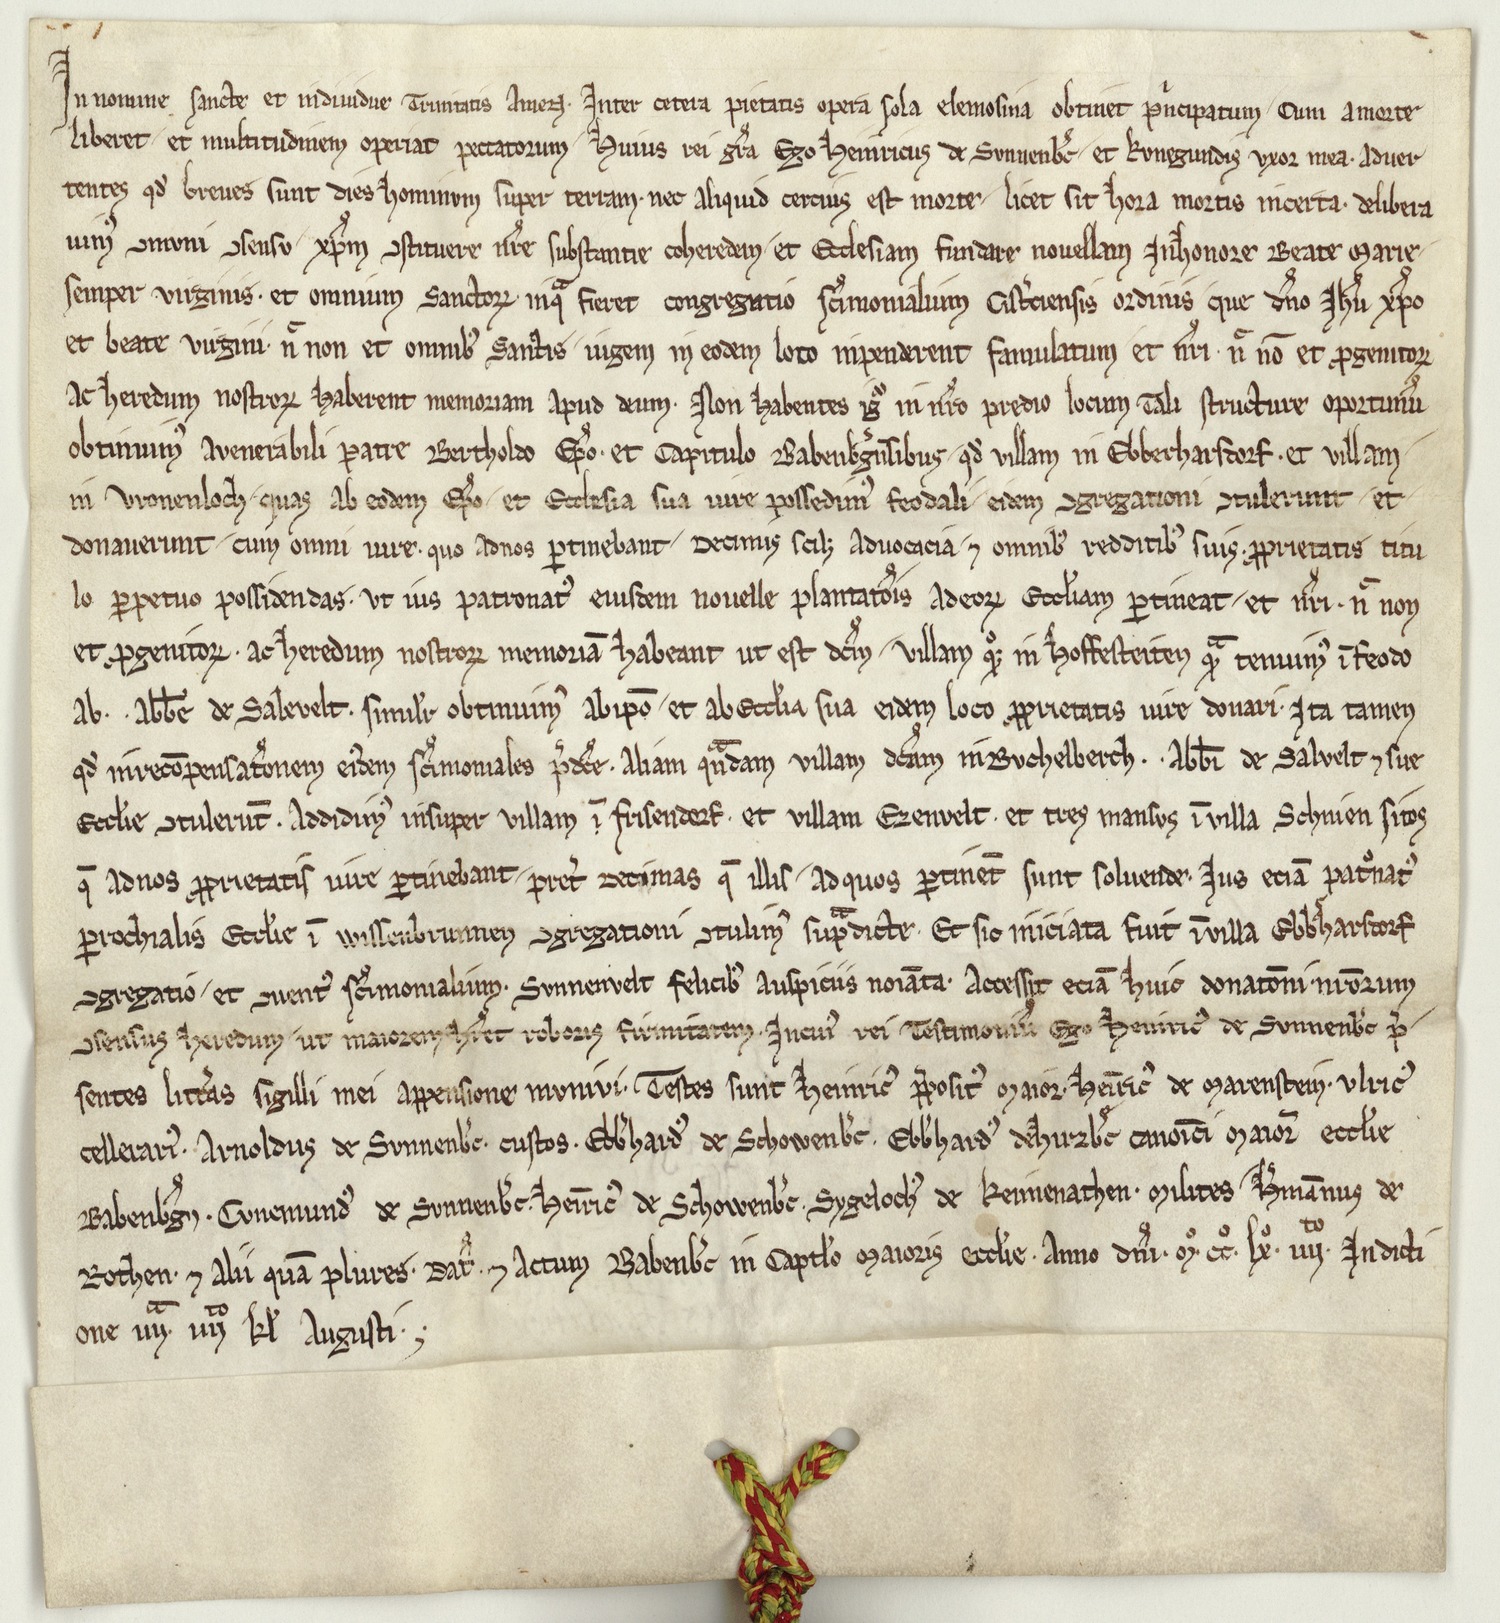 In nomine sancte et individue Trinitatis Amen. Inter cetera pietatis opera sola elemosina obtinet p͛ncipatum / Cum a morte
liberet / et multitudinem operiat peccatorum / Huius rei gr̃a Ego Heinricus de Svnnenb͛c / et kvnegundis uxor mea. adver
tentes qd̓ breues sunt dies hominvm super terram. nec aliquid cercius est morte / licet sit hora mortis incerta. delibera
uim᷒ vnioni ꝯsensv / xp̄m ꝯstituere nr̃e substantie coheredem / et Ecclesiam fundare nouellam In honore Beate Marie /
semper virginis. et omnium Sanctoꝝ. in qͣ fieret congregatio sc̃imonialium Cist̓ciensis ordinis que dn̄o Ihū xp̄o
et beate virgini. nͣ non et omnib᷒ Sanctis / iugem in eodem loco inpenderent famulatum / et nr̃i. nͣ nō et ꝓgenitoꝝ
Ac heredum nostroꝝ haberent memoriam apud deum. Non habentes igͦ in nr̃o predio locum Tali structure oportunū
obtinuim᷒ a venerabili patre Bertholdo Ep̄o. et Capitulo Babenb͛gn̄sibus / qd̓ villam in Ebberharsdorf. et villam /
in Vronenloch / quas ab eodem Ep̄o / et Ecclesia sua iure possedim᷒ feodali / eidem ꝯgregationi ꝯtulerunt / et /
donauerunt / cum omni iure. quo ad nos ꝑtinebant / Decimis scilꝫ Aduocacia ⁊ omnib᷒ redditib᷒ suis. ꝓprietatis titu
lo ꝑpetuo possidendas. ut ius patronat᷒ eiusdem nouelle plantatōis ad eoꝝ Eccl̓iam ꝑtineat / et nr̃i. nͣ non
et ꝓgenitoꝝ. ac heredum nostroꝝ memoriā habeant ut est dc̄m / villam qͦꝫ in Hoffesteiten qͣ tenuim᷒ ī feodo
ab. . Abb̄e de Salevelt. simil̓r obtinuim᷒ ab ipō / et ab Eccl̓ia sua eidem loco ꝓprietatis iure donari. Ita tamen
qd̓ in recōpensatōnem eid̓em sc̃imoniales p̓dc̄e. Aliam qͣndam villam dc̄am in Bvchelberch. . Abb̄i de Salvelt ⁊ sue
Eccl̓ie ꝯtulerūt. Addidim᷒ insuper villam ī frisendorf. et villam Ezenvelt. et tres mansvs ī villa Schnien sitos
q̄ ad nos ꝓprietatis iure ꝑtinebant / pret̓ Decimas q̄ illis / ad quos ꝑtinēt sunt soluende. Ius eciā patͦnat᷒
ꝑrochialis Eccl̓ie ī wissenbrunnen ꝯgregationi ꝯtulim᷒ supͣdicte. Et sic iniciata fuit ī villa Ebb̓harsdorf
ꝯgregatio / et ꝯuent᷒ sc̃imonialium. Svnnenvelt felicib᷒ auspiciis noīata. Accessit eciā huic donatōni nr̄orum
ꝯsensus heredum / ut maiorem h̓ret roboris firmitatem. In cui᷒ rei Testimoniū Ego Heinric᷒ de Svnnenb͛c p̓
sentes litt̓as sigilli mei appensione mvnivi. Testes sunt Heinric᷒ p̓posit᷒ Maior. Hein̄ric᷒ de Marenstein. Vlric᷒
cellerari᷒. Arnoldus de Svnnenb͛c. custos. Ebb̓hard᷒ de Schowenb͛c. Ebb̓hard᷒ de Hirzb͛c canoīci Maior̄ eccl̓ie
Babenb͛gn̄. Cvnemund᷒ de Svnnenb͛c. Hein̄ric᷒ de Schowenb͛c. Sygeloch᷒ de kemenathen. Milites / H̓mānus de
Rothen. ⁊ alii quā plures. Dat̄. ⁊ Actum Babenb͛c in Captl̓o Maioris eccl̓ie. Anno dn̄i. Mͦ. CCͦ. lxͦ. iiijͭͦ. Indicti
one vijͣ. viijͭͦ kl̓ Augusti. ;